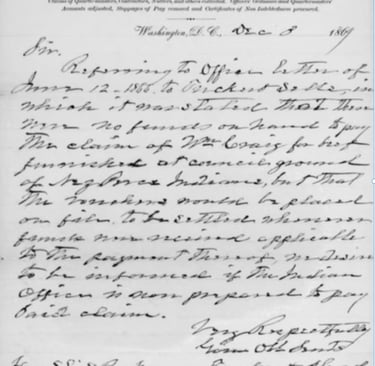 Claims of Quartermasters, Contractors, Sutlers, and others collected. Officers' Ordnance and Quartermasters'
Accounts adjusted, Stoppages of Pay removed and Certificates of Non Indebtedness procured.
Washington, D.C. Dec 8 1869
Sir.
Referring to Office letter of
June 12, 1866, to
which it was stated that there
were no funds on hand to pay
the claim of Wm Craig for beef
furnished at council ground
of Nez Perce Indians, but that
the vouchers would be placed
on file to be settled whenever
funds were received applicable
to the payment thereof, we desire
to be informed if the Indian
Office is now prepared to pay
said claim.
Very Respectfully